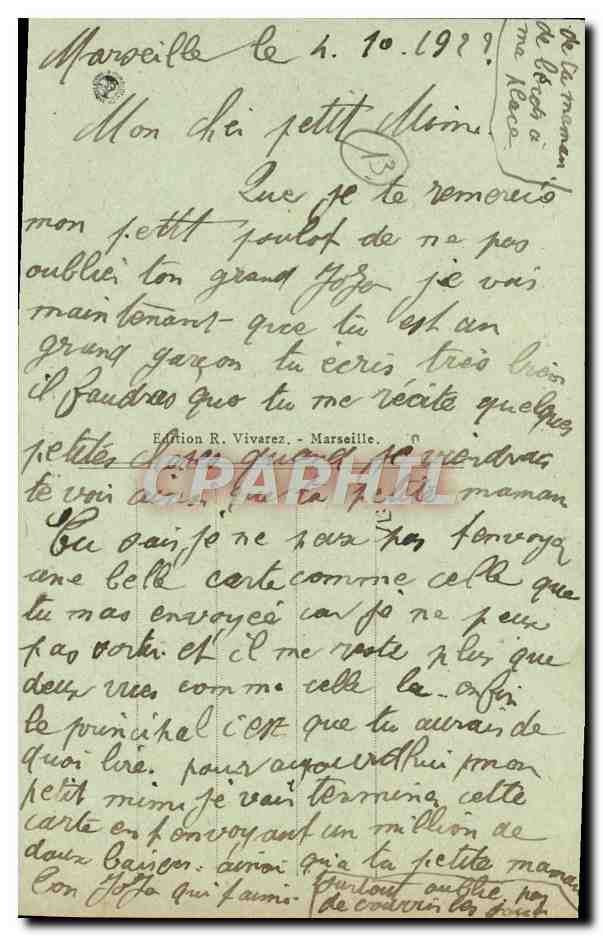 Marseille le 4. 10. 1922
de ta maman
de lérots à
ma place
Mon cher petit Mimi
13
Que je te remercie
mon petit poulot de ne pas
oublier ton grand JoJo je vois
maintenant que tu est un
grand garçon tu écris très bien
il faudras que tu me récite quelques
Edition R. Vivarez. - Marseille.
petites choses quand je viendrais
CPAPHIL
te voir ainsi que ta petite maman
Tu sais je ne peux pas t'envoyer
une belle carte comme celle que
tu mas envoyée car je ne peux
pas sortir et il me reste plus que
deux vues comme celle la. enfin
le principal c'est que tu aurais de
quoi lire. pour aujourd'hui mon
petit mimi je vais terminer cette
carte en t'envoyant un million de
doux baisers. ainsi qu'a ta petite maman
Ton JoJo qui t'aime.
surtout oublie pas
de couvrir les